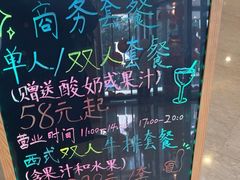 商务套餐
单人/双人套餐
(赠送酸奶或果汁)
58元起
营业时间 11:00-14:00 17:00-20:00
西式双人牛排套餐
(含果汁和水果)